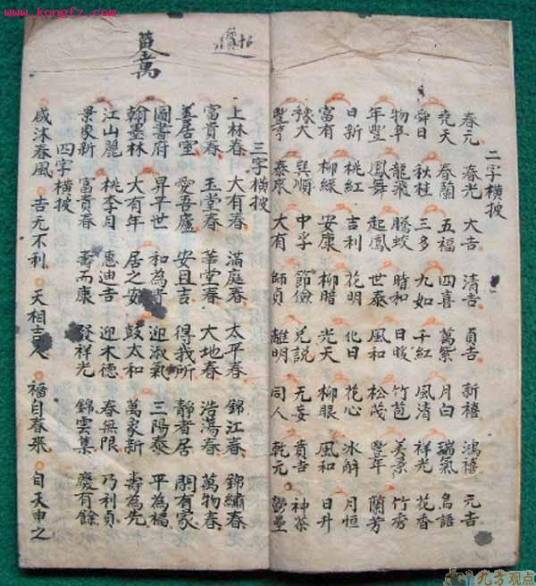 www.kongfz.com
二字橫披
春元 春光 大吉 清吉 貞吉 新禧 鴻禧 元吉
堯天 春蘭 五福 四喜 萬紫 月白 瑞氣 鳥語
舜日 秋桂 三多 九如 千紅 風清 祥光 花香
物阜 龍飛 騰蛟 時和 日暖 竹苞 美景 竹秀
年豐 鳳舞 起鳳 世泰 風和 松茂 豐年 蘭芳
日新 桃紅 吉利 花明 化日 花心 冰解 月恒
富有 柳綠 安康 柳暗 光天 柳眼 風和 日升
豫大 巽順 中孚 節儉 兌說 无妄 賁吉 神荼
豐亨 泰來 大有 師貞 離明 同人 乾元 鬱壘
三字橫披
上林春 大有春 滿庭春 太平春 錦江春 錦繡春
富貴春 玉堂春 華堂春 大地春 浩蕩春 萬物春
美居室 愛吾廬 安且吉 得我所 靜者居 閑有家
圖書府 昇平世 和為貴 迎淑氣 三陽泰 平為福
翰墨林 大有年 居之安 鼓太和 萬家新 壽為先
江山麗 桃李月 惠迪吉 迎木德 春無限 乃利貞
景象新 富貴春 壽而康 發祥光 錦雲集 慶有餘
四字橫披
咸沐春風 吉元不利 天相吉人 福自春來 自天申之